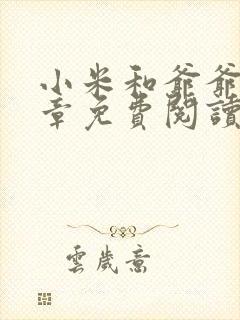 小米和爺爺
章免費閱讀
雲歲意